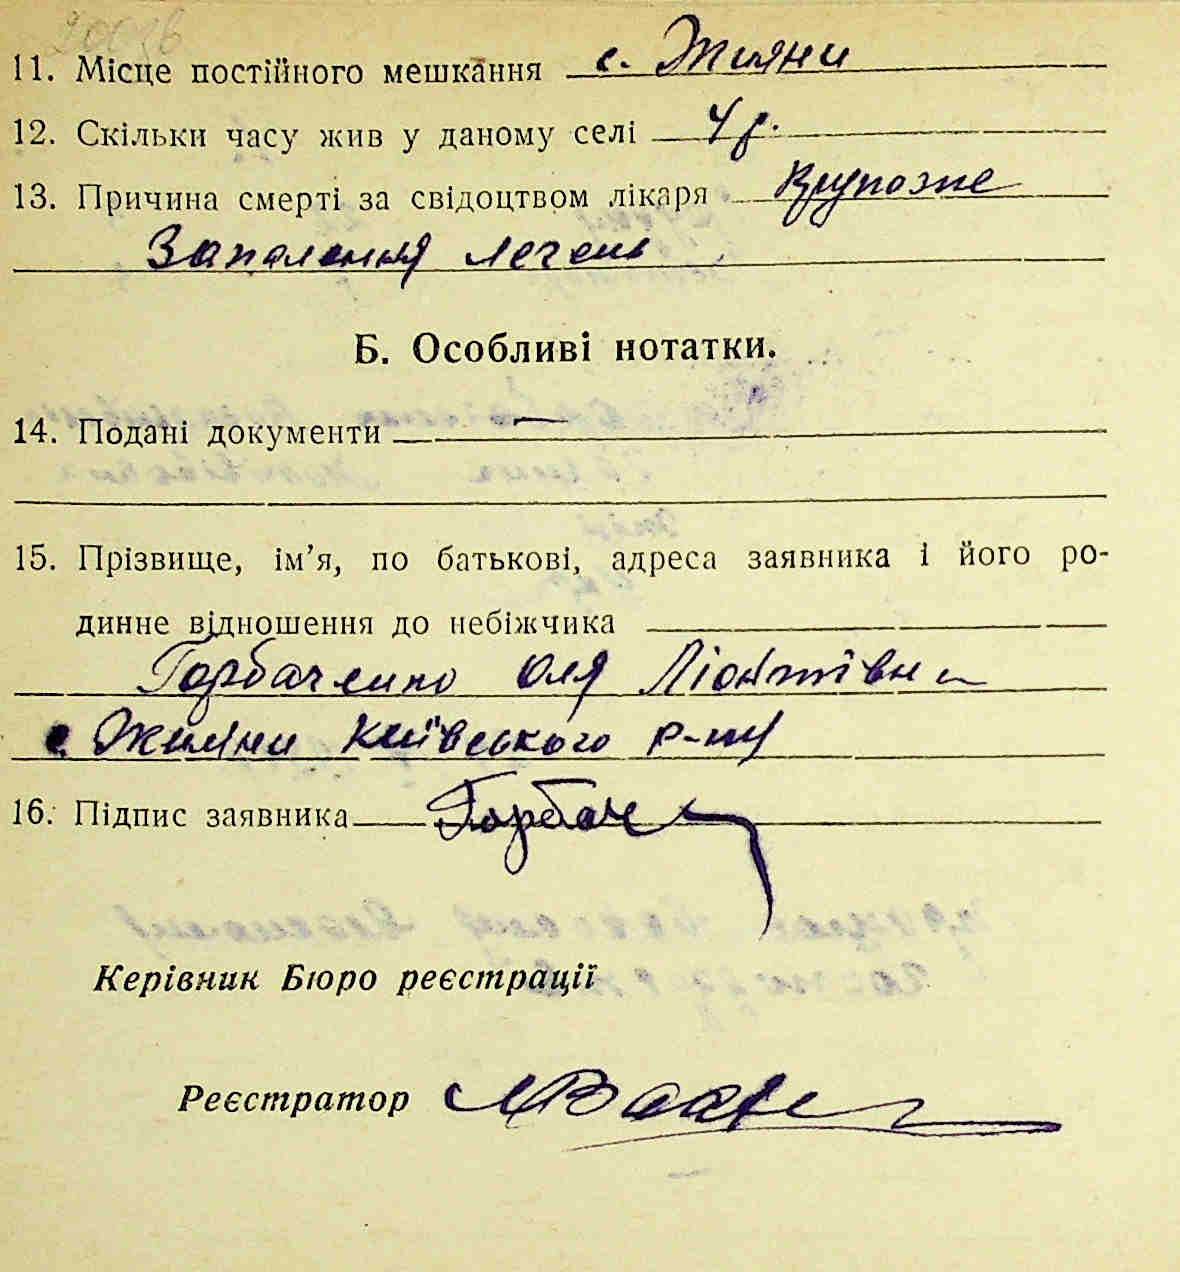 11. Місце постійного мешкання с. Жиляни
12. Скільки часу жив у даному селі 4 р.
13. Причина смерті за свідоцтвом лікаря Крупозне
Запалення легень
Б. Особливі нотатки.
14. Подані документи —
15. Прізвище, ім’я, по батькові, адреса заявника і його ро-
динне відношення до небіжчика
Горбаченко Оля Ліонтівн
с. Жиляни Київського р-ну
16. Підпис заявника Горбач
Керівник Бюро реєстрації
Реєстратор